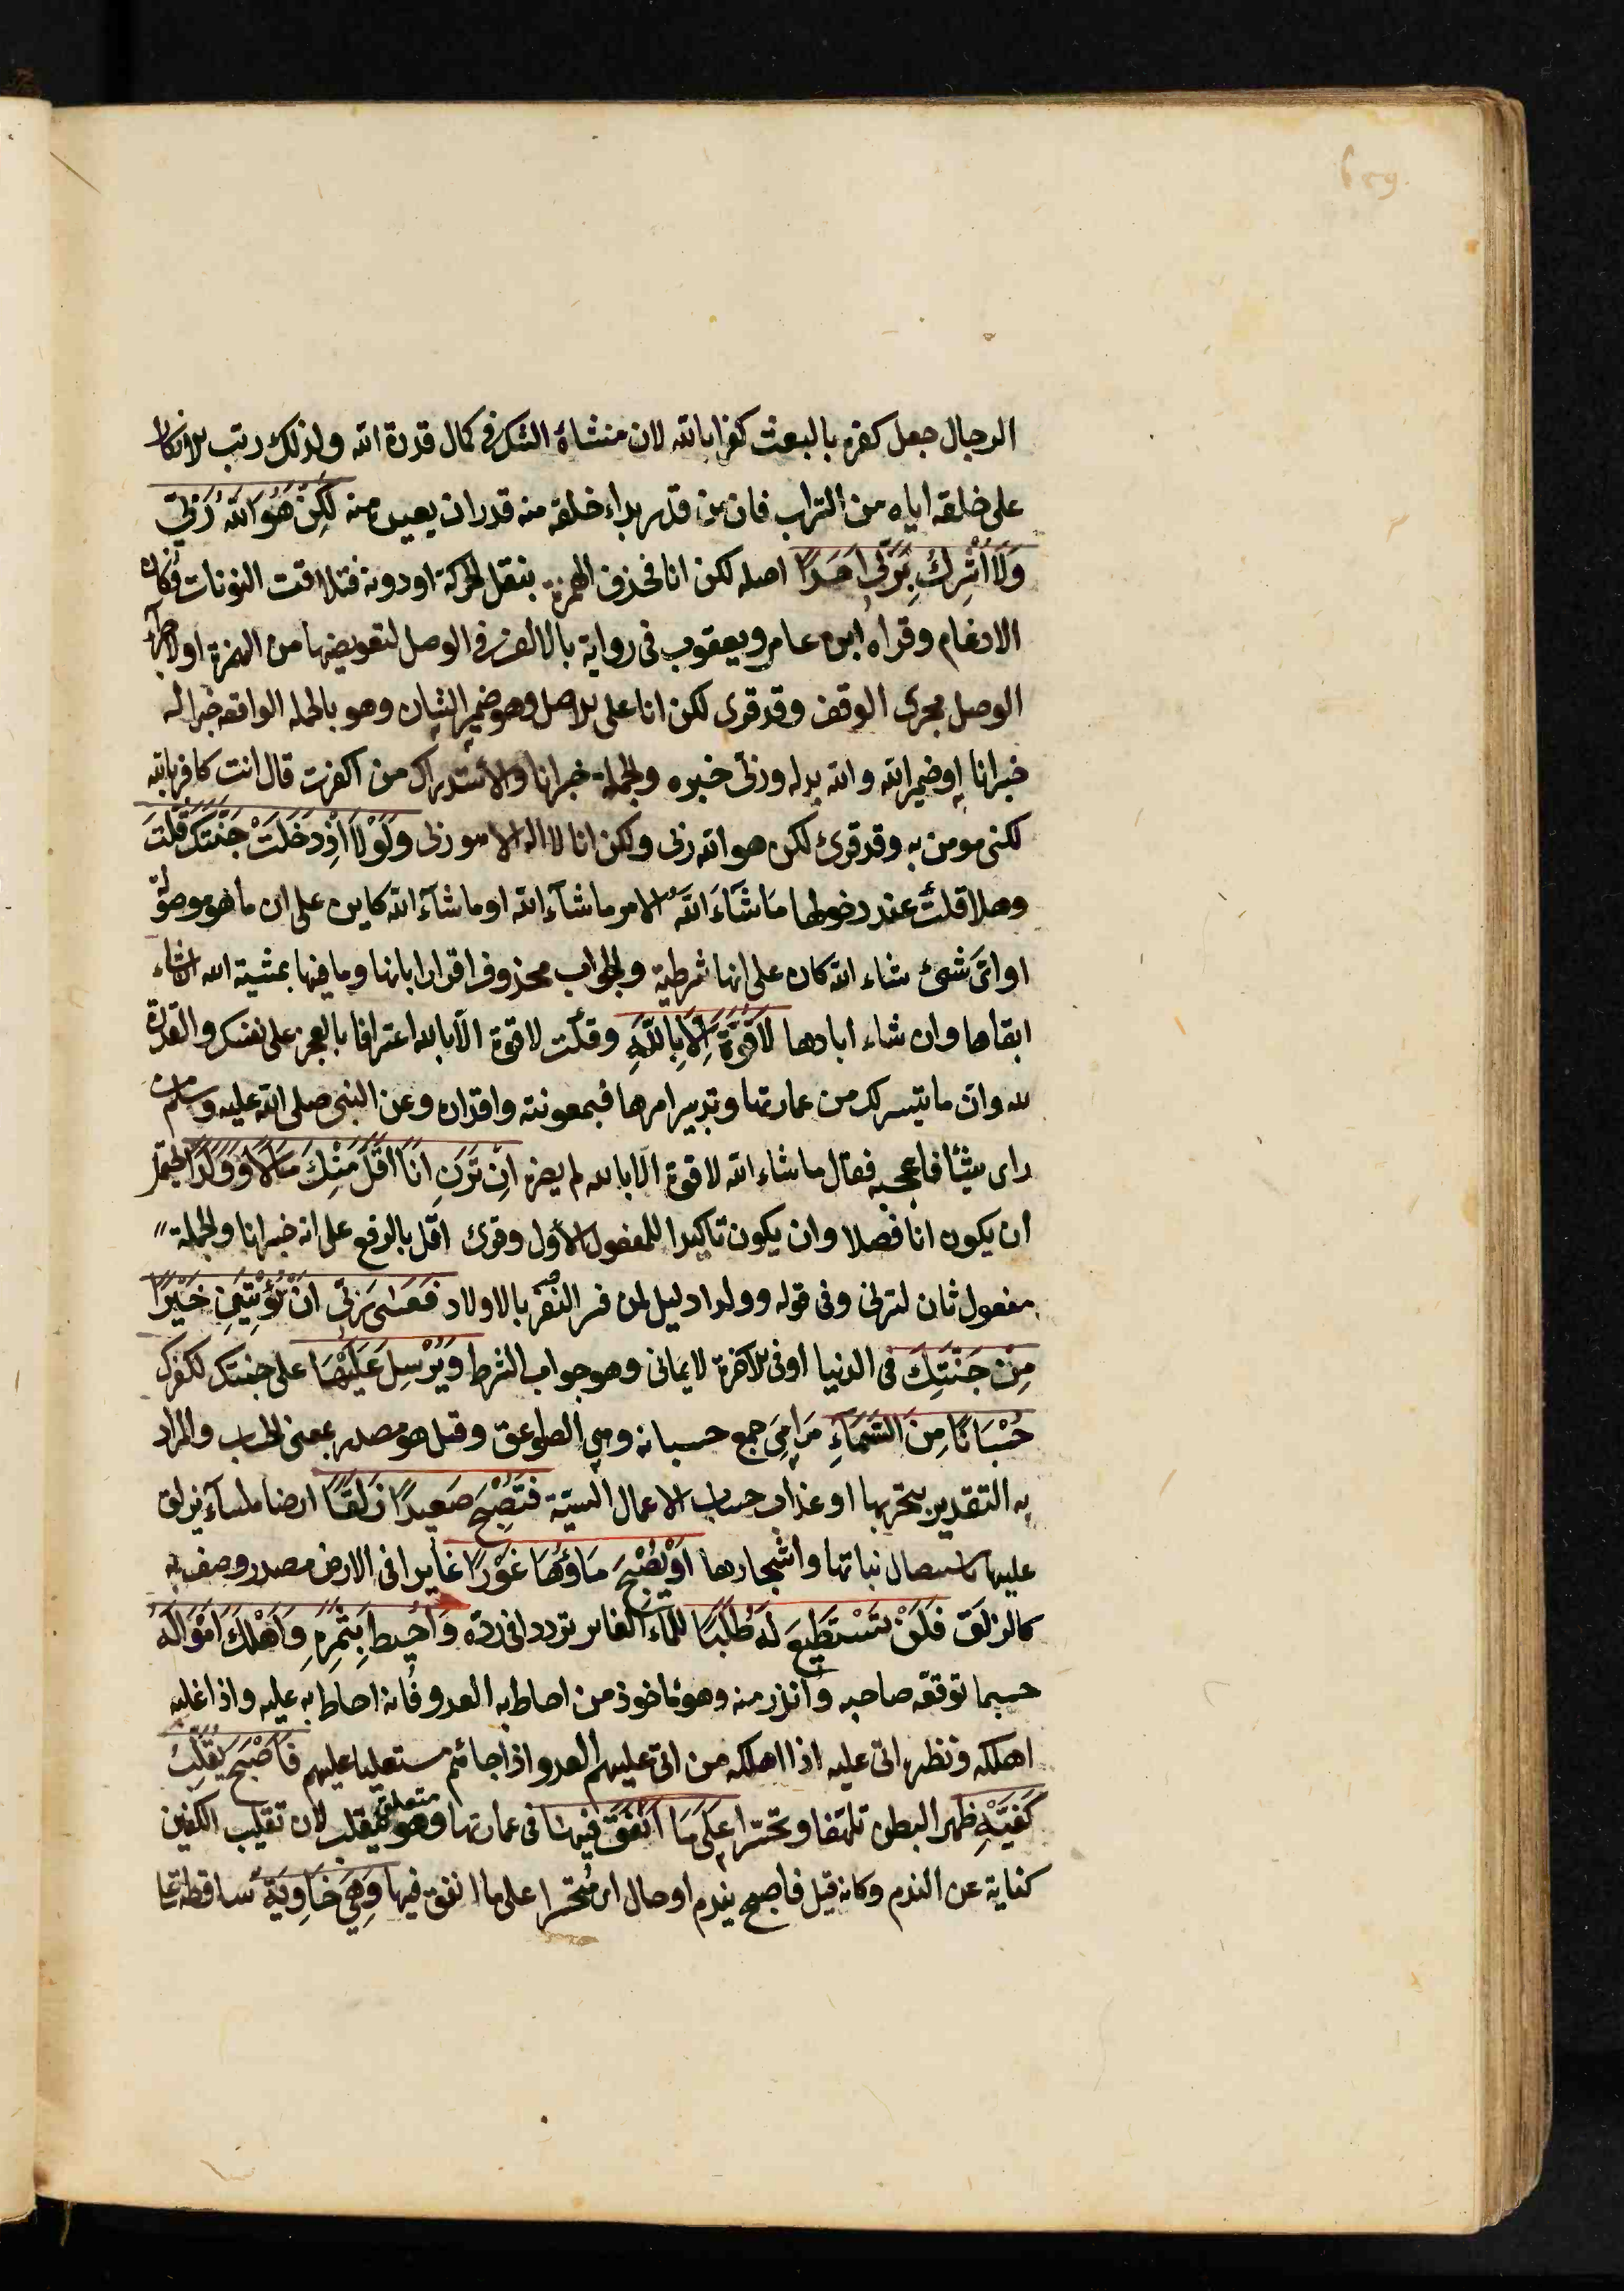 الرجال جعل كفره بالبعث كفرا بالله لان منشاه الشك فى كمال قدرة الله ولذلك رتب الانكار
على خلقه اياه من التراب فان من قدر بداء خلقه منه قدر ان يعيده منه لٰكِنَّ هُوَ اللّٰهُ رَبِّي
وَلَا اُشْرِكُ بِرَبِّى اَحَدًا اصله لكن انا فحذف الهمزة بنقل الحركة او دونه فتلاقت النونات فكان
الادغام وقراه ابن عامر ويعقوب فى رواية بالالف فى الوصل لتعويضها من الهمزة او لاجراء
الوصل مجرى الوقف وقد قرى لكن انا على الاصل وهو ضمير الشان وهو بالجملة الواقعه خبرا له
خبر انا او ضمير الله والله بدله وربى خبره والجملة خبر انا والاستدراك من اكفرت قال انت كافر بالله
لكنى مومن به وقد قرئ لكن هو الله ربى ولكن انا لا اله الا هو ربى وَلَوْلَا اِذْ دَخَلْتَ جَنَّتَكَ قُلْتَ
وهلا قلت عند دخولها مَا شَآءَ اللّٰهُ الامر ما شآء الله او ما شآء الله كاين على ان ما هو موصولة
او اىّ شئ شاء الله كان على انها شرطية والجواب محذوف اقرارا بانها وما فيها بمشية الله ان شاء
ابقاها وان شاء ابادها لَا قُوَّةَ اِلَّا بِاللّٰهِ وقلت لا قوة الا بالله اعترافا بالعجز على نفسك والقدرة
لله وان ما تيسر لك من عمارتها وتدبير امرها فبمعونته واقداره وعن النبى صلى الله عليه وسلم من
راى شيئا فاعجبه فقال ما شاء الله لا قوة الا بالله لم يضره اِنْ تَرَنِ اَنَا اَقَلَّ مِنْكَ مَالًا وَوَلَدًا يحتمل
أن يكون انا فصلا وان يكون تاكيدا للمفعول الأول وقرئ اقل بالرفع على انه خبر انا والجملة
مفعول ثان لترنى وفى قوله وولدا دليل لمن فسر النفر بالاولاد فَعَسٰى رَبِّى اَنْ يُؤْتِيَنِ خَيْرًا
مِنْ جَنَّتِكَ فى الدنيا او فى الاخرة لايمانى وهو جواب الشرط وَيُرْسِلَ عَلَيْهَا على جنتك لكفرك
حُسْبَانًا مِنَ السَّمَآءِ مَرَامِىَ جمع حسبانة وهى الصواعق وقيل هو مصدر بمعنى الحساب والمراد
به التقدير بتخريبها او عذاب حساب الاعمال السيّة فَتُصْبِحَ صَعِيدًا زَلَقًا ارضا ملسآء يزلق
عليها باستيصال نباتها واشجارها اَوْ يُصْبِحَ مَاؤُهَا غَوْرًا غايرا فى الارض مصدر وصف به
كالزلق فَلَنْ تَسْتَطِيعَ لَهُ طَلَبًا للمآء الغاير ترددا فى رده وَاُحِيطَ بِثَمَرِهِ وَاُهْلِكَ اَمْوَالَهُ
حسبما توقعه صاحبه وأنذر منه وهو ماخوذ من احاط به العدو فانه احاط به عليه واذا غلبه
اهلكه ونظيره اتى عليه اذا اهلكه من اتى عليهم العدو اذا جائهم مستعليا عليهم فَاَصْبَحَ يُقَلِّبُ
كَفَّيْهِ ظهرا لبطن تلهفا وتحسرا عَلٰى مَا اَنْفَقَ فِيهَا فى عمارتها وهو متعلق بيقلب لان تقليب الكفين
كناية عن الندم وكانه قيل فاصبح يندم او حال اى متحسرا على ما انفق فيها وَهِىَ خَاوِيَةٌ ساقطة